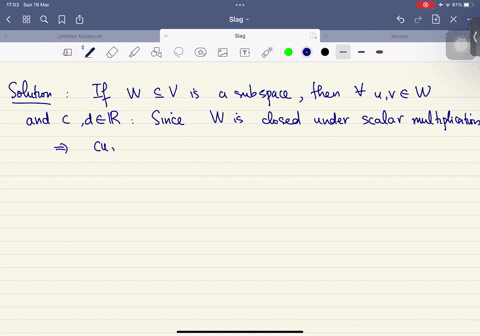 17:03 Sun 19 Mar
61%
Slag
Untitled Notebook
Slag
Review
Solution : If W ⊆ V is a subspace, then ∀ u,v ∈ W
and c ,d∈ℝ : Since W is closed under scalar multiplication
⇒ cu,